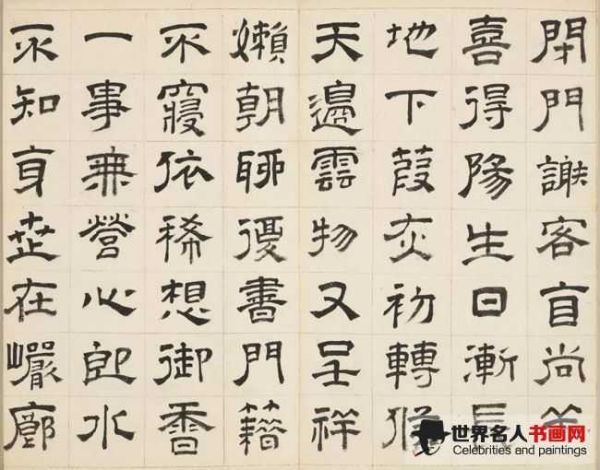 閉門謝客尚羊
喜得陽生日漸長
地下葭灰初轉候
天邊雲物又呈祥
嬾朝聊復書門籍
不寢依稀想御香
一事無營心即水
不知身世在巖廊
世界名人书画网
Celebrities and paintings